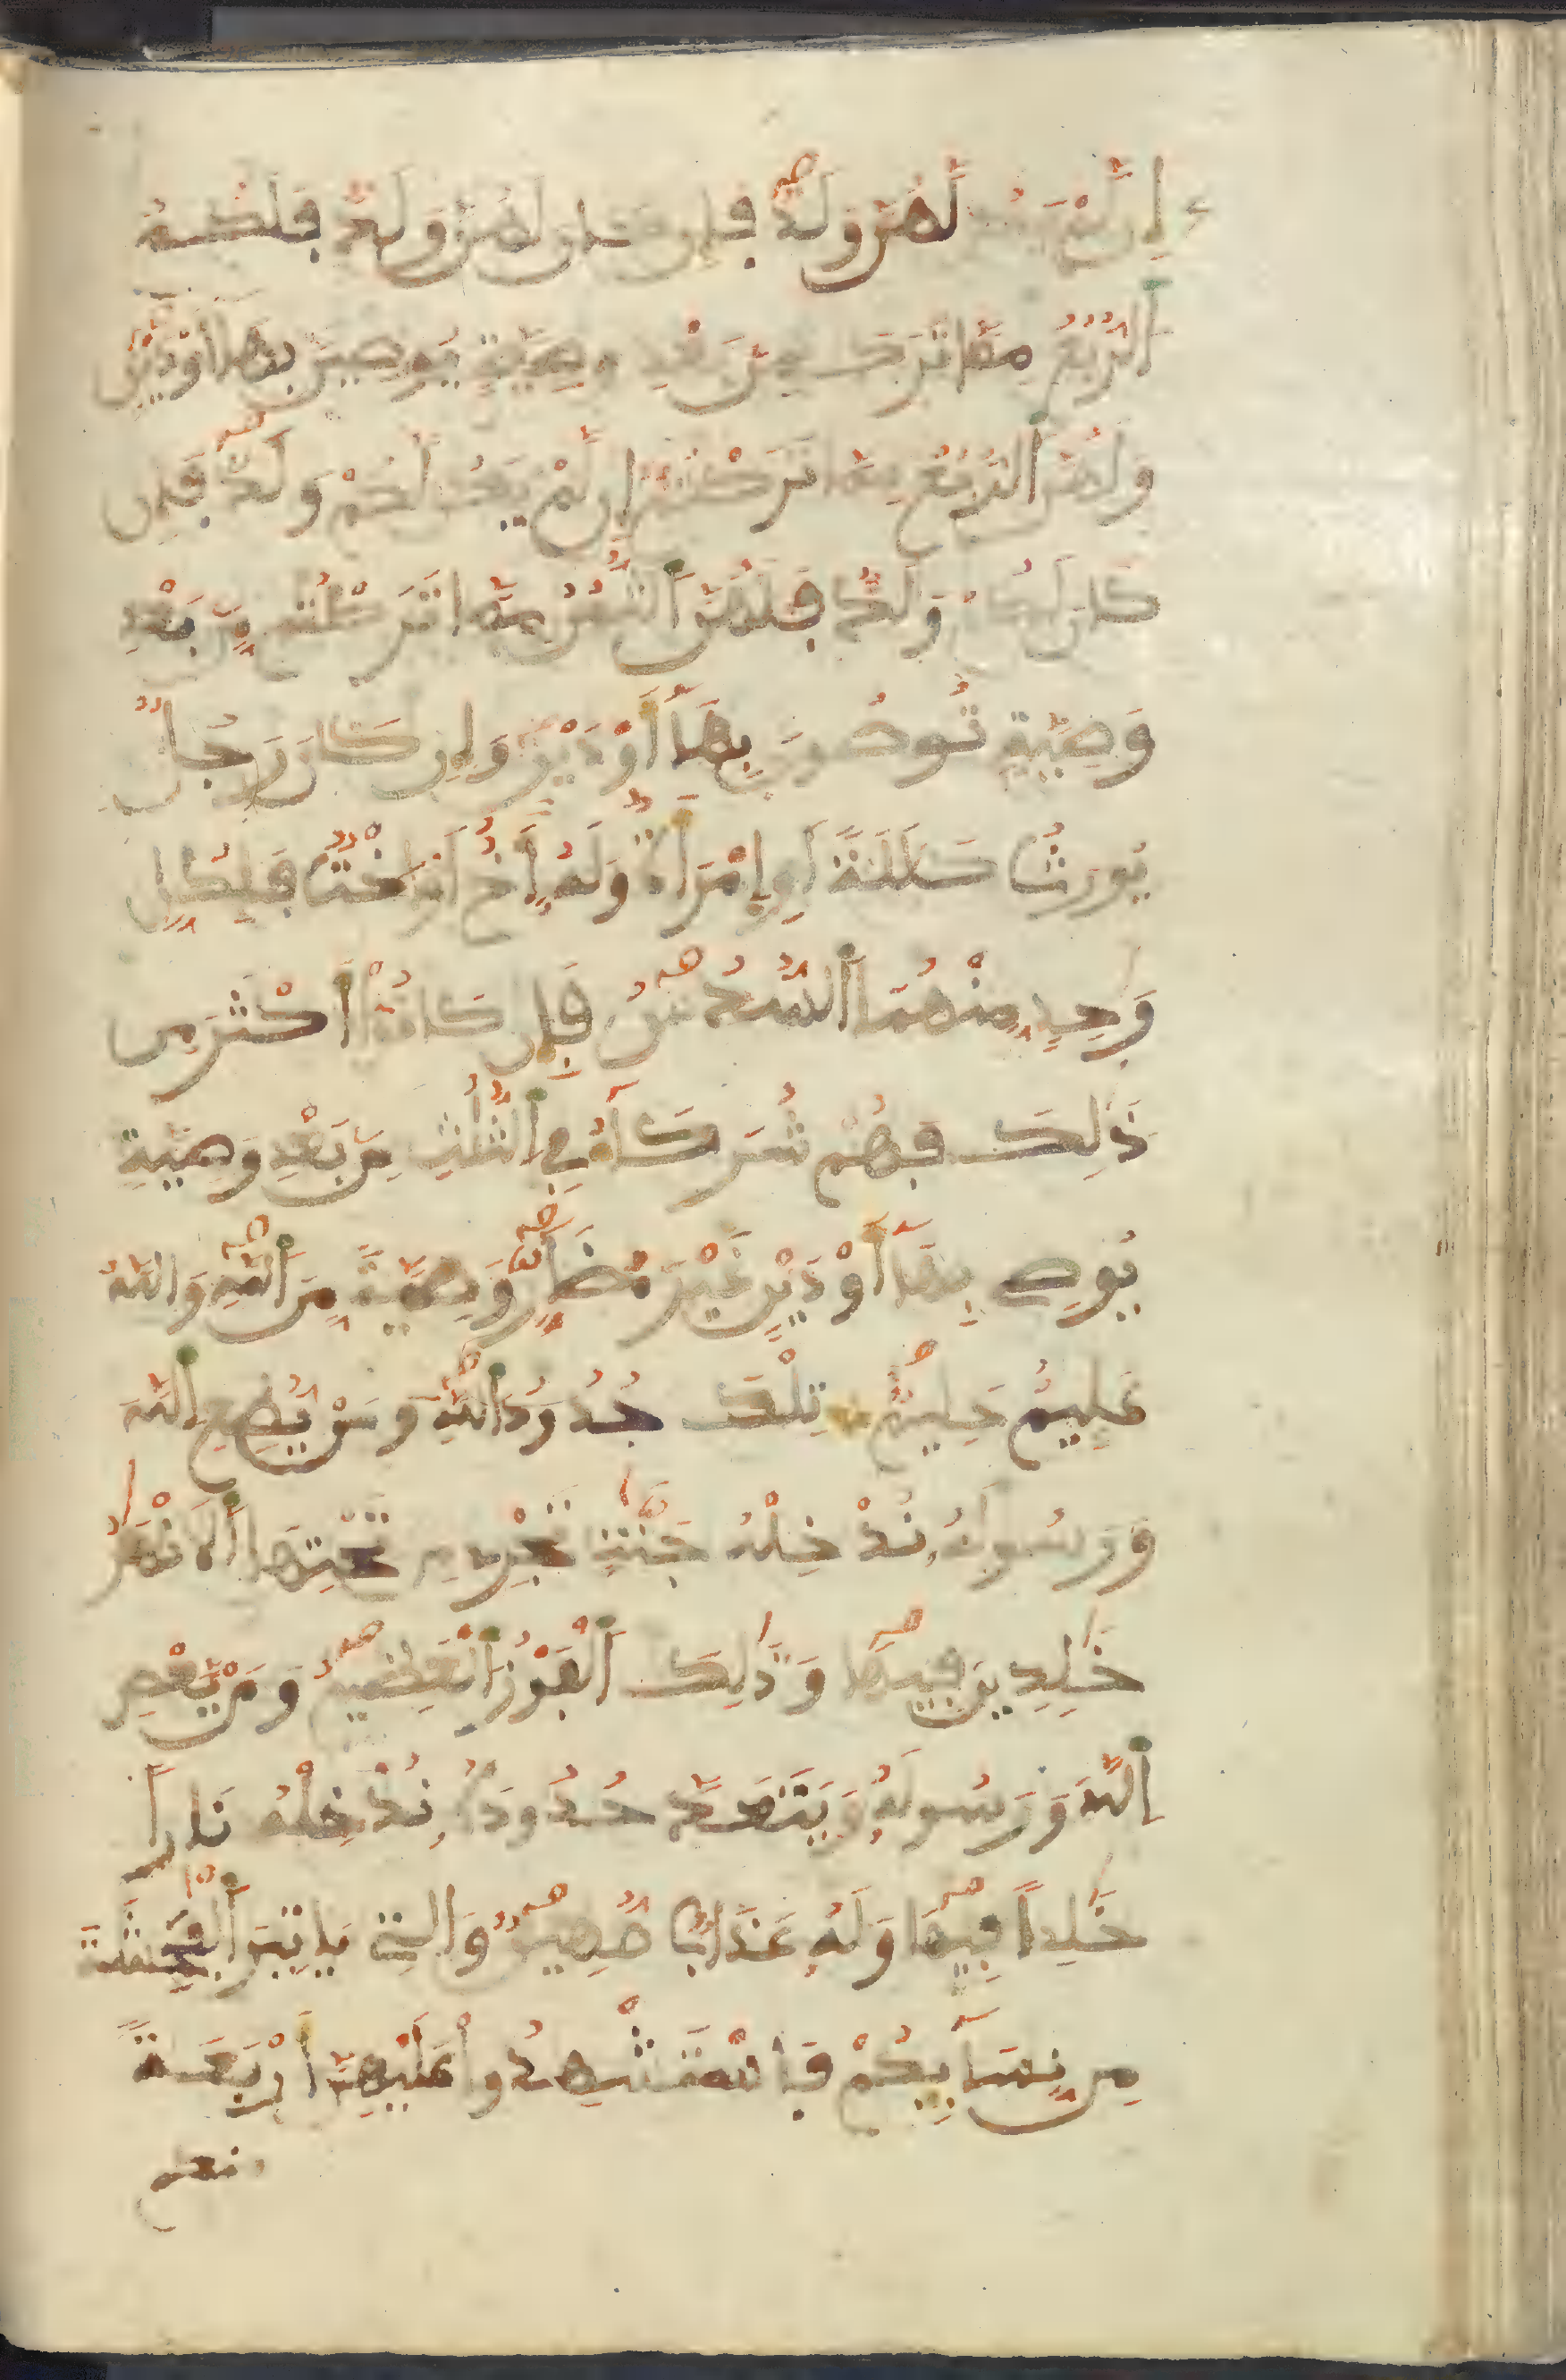 إِن لَّمْ يَكُن لَّهُنَّ وَلَدٌ فَإِن كَانَ لَهُنَّ وَلَدٌ فَلَكُمُ
اُ۬لرُّبُعُ مِمَّا تَرَكْنَ مِنۢ بَعْدِ وَصِيَّةٍ يُوصِينَ بِهَآ أَوْ دَيْنٍ
وَلَهُنَّ اَ۬لرُّبُعُ مِمَّا تَرَكْتُمْ إِن لَّمْ يَكُن لَّكُمْ وَلَدٌ فَإِن
كَانَ لَكُمْ وَلَدٌ فَلَهُنَّ اَ۬لثُّمُنُ مِمَّا تَرَكْتُم مِّنۢ بَعْدِ
وَصِيَّةٍ تُوصُونَ بِهَآ أَوْ دَيْنٍ وَإِن كَانَ رَجُلٌ
يُورَثُ كَلَٰلَةً أَوِ إِمْرَأَةٌ وَلَهُۥٓ أَخٌ أَوُ اخْتٌ فَلِكُلِّ
وَٰحِدٍ مِّنْهُمَا اَ۬لسُّدُسُ فَإِن كَانُوٓاْ أَكْثَرَ مِن
ذَٰلِكَ فَهُمْ شُرَكَآءُ فِي اِ۬لثُّلُثِ مِنۢ بَعْدِ وَصِيَّةٍ
يُوصِے بِهَآ أَوْ دَيْنٍ غَيْرَ مُضَآرٍّ وَصِيَّةً مِّنَ اَ۬للَّهِ وَاللَّهُ
عَلِيمٌ حَلِيمٌ تِلْكَ حُدُودُ اُ۬للَّهِ وَمَنْ يُّطِعِ اِ۬للَّهَ
وَرَسُولَهُۥ نُدْخِلْهُ جَنَّٰتٍ تَجْرِے مِن تَحْتِهَا اَ۬لَانْهَٰرُ
خَٰلِدِينَ فِيهَا وَذَٰلِكَ اَ۬لْفَوْزُ اُ۬لْعَظِيمُ وَمَنْ يَّعْصِ
اِ۬للَّهَ وَرَسُولَهُۥ وَيَتَعَدَّ حُدُودَهُۥ نُدْخِلْهُ نَاراً
خَٰلِداً فِيهَا وَلَهُۥ عَذَابٌ مُّهِينٌ وَالَّٰتِے يَاتِينَ اَ۬لْفَٰحِشَةَ
مِن نِّسَآئِكُمْ فَاسْتَشْهِدُواْ عَلَيْهِنَّ أَرْبَعَةً
منكم